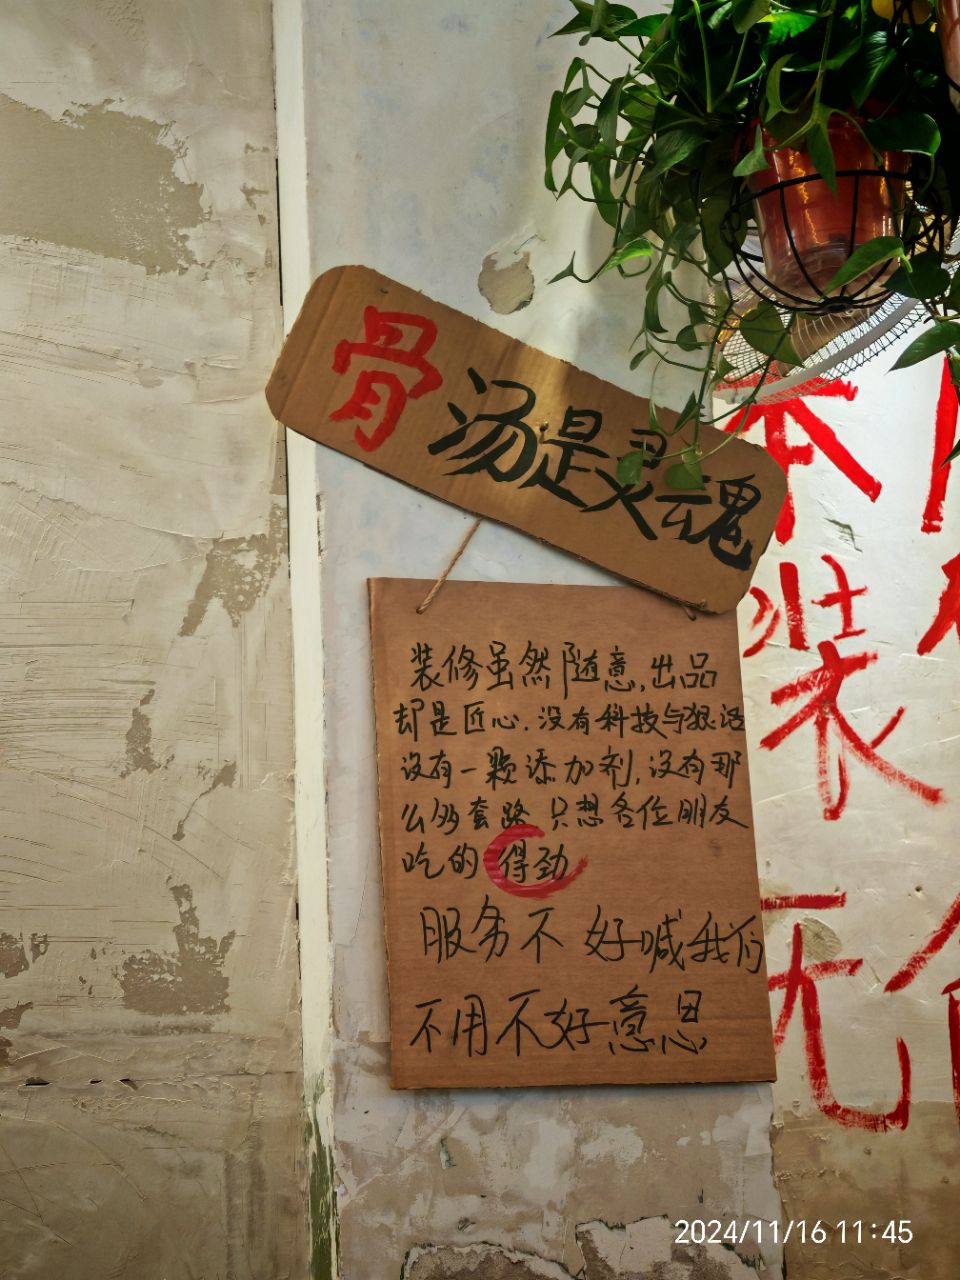 骨汤是灵魂
装修虽然随意,出品
却是匠心.没有科技与狠活
没有一颗添加剂,没有那
么多套路 只想各位朋友
吃的 得劲
服务不好喊我们
不用不好意思
本
装
无
2024/11/16 11:45